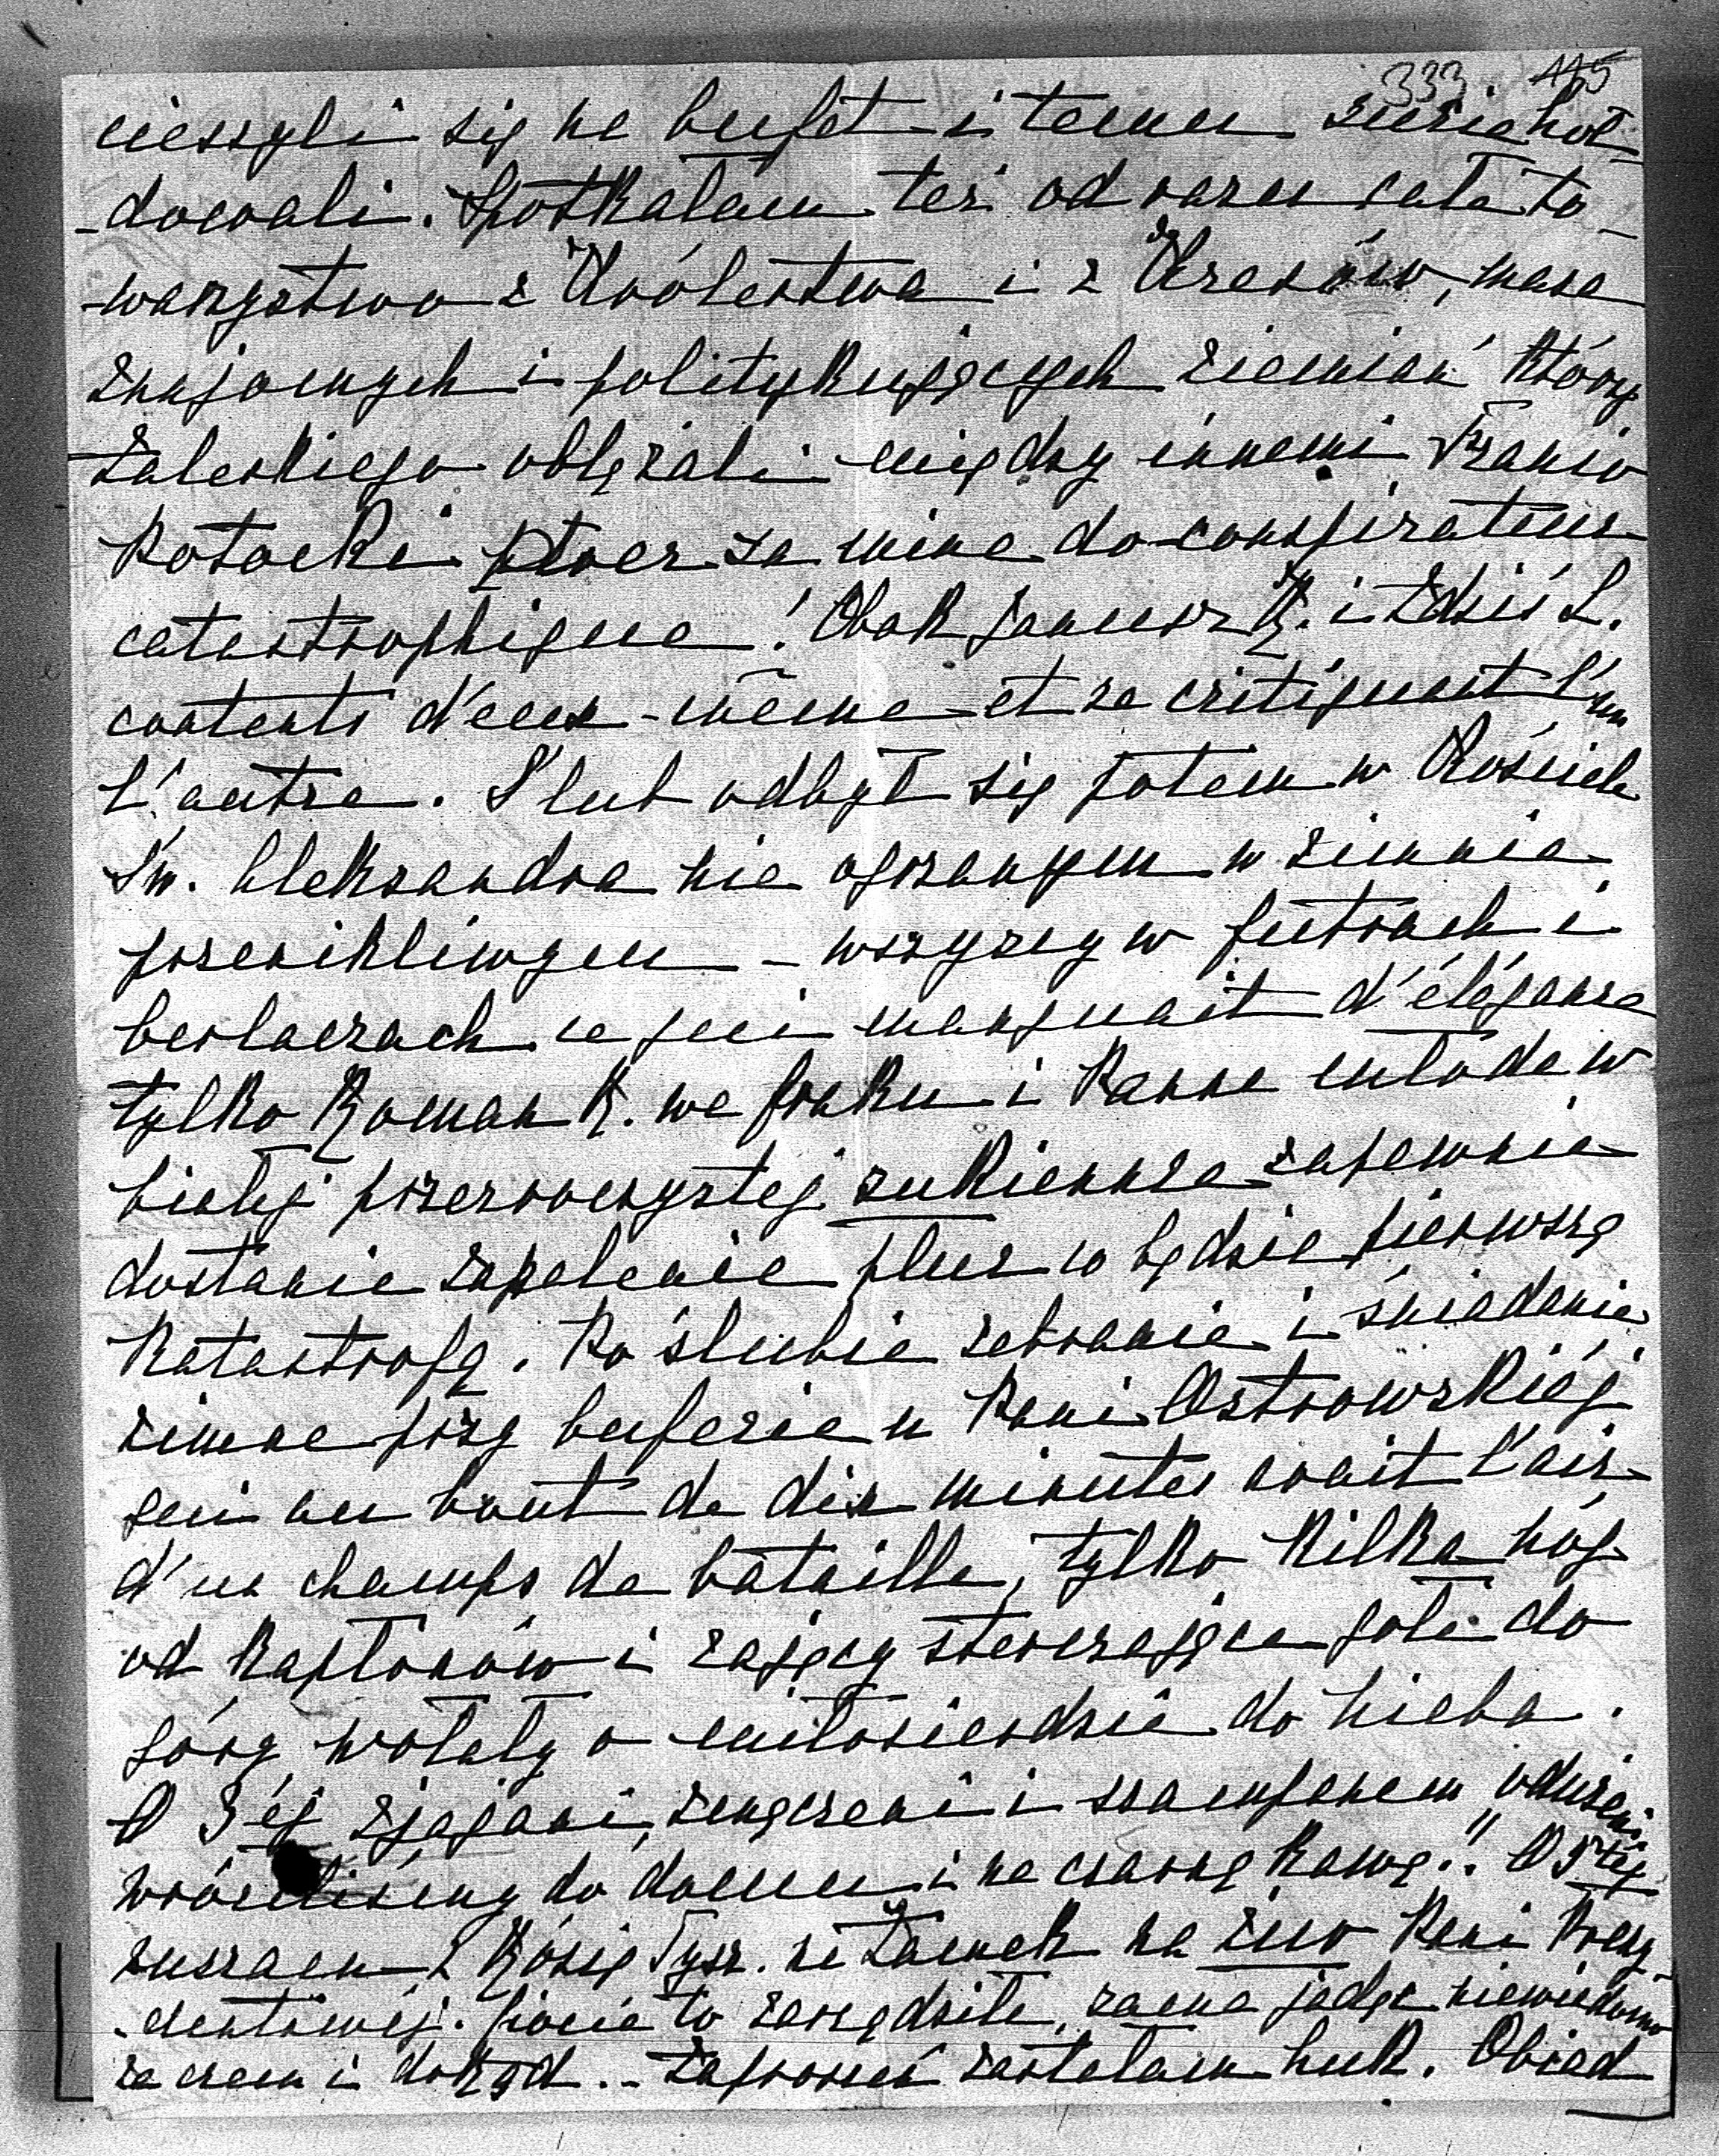 333 115
cieszyli się na bufet i temu znów hoł-
-dowali. Spotkałam też od razu całe to-
-warzystwo z Królestwa i z Kresów, masa
znajomych i politykujących ziemian którzy
Zaleskiego oblężali między innemi Franio
Potocki avec sa mine de conspirateur
catastrophique! Obok Janusz R. i Zdziś L.
contents d'eux-même et se critiquant l'un
l'autre. Ślub odbył się potem w Kościele
Św. Aleksandra nie ogrzanym w zimnie
przenikliwym – wszyscy w futrach i
berlaczach ce qui manquait d'élégance
tylko Roman R. we fraku i Panna młoda w
białej przezroczystej sukience zapewnie
dostanie zapalenie płuc co będzie pierwszą
Katastrofą. Po ślubie zebranie i śniadanie
zimne przy bufecie u Pani Ostrowskiéj
qui au bout de dix minutes avait l'air
d'un champs de bataille, tylko kilka nóg
od kapłonów i zajęcy sterczające gołe do
góry wołały o miłosierdzie do nieba.
O 3éj zziajani, zmęczeni i szampanem odurzeni
wróciliśmy do domu i na czarną kawę!! O 5tej
ruszam z Rózią Tysz. na Zamek na żur Pani Prezy-
-dentowéj. Jadę niewiadomo
za czem i dokąd.. Zaproszeń zastałam huk. Obiad